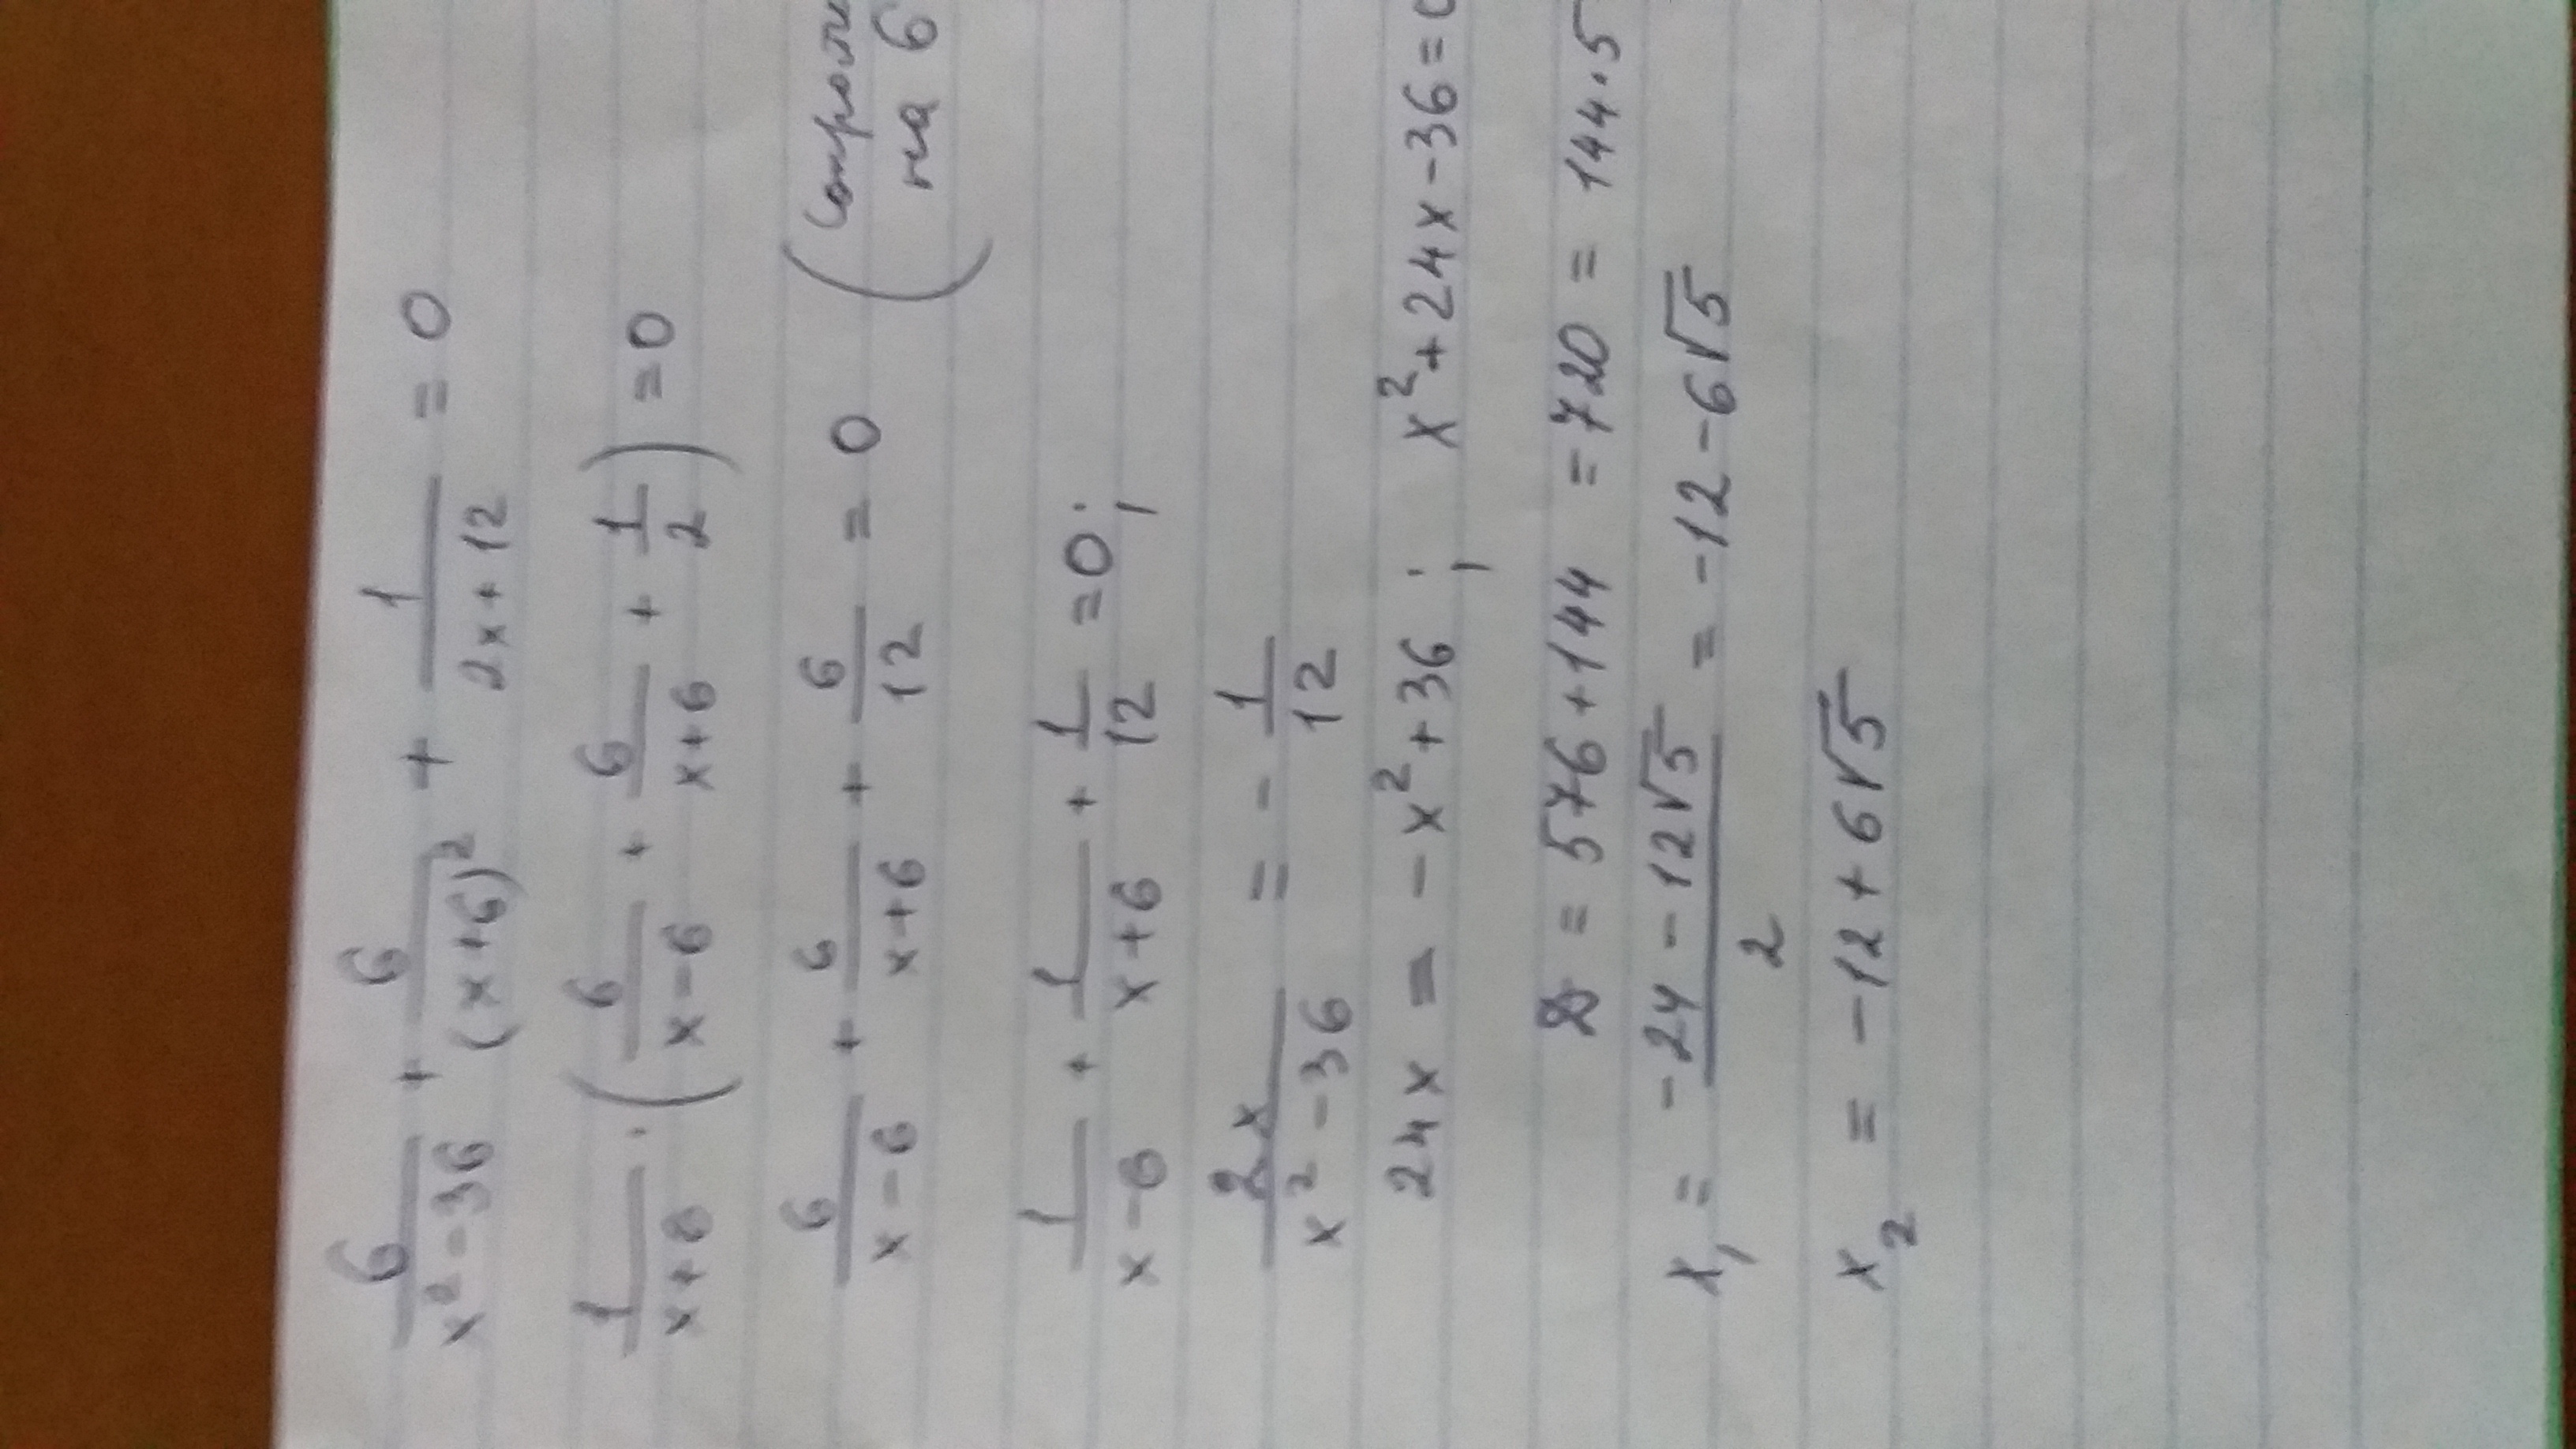 6/(x²-36) + 6/(x+6)² + 1/(2x+12) = 0
1/(x+6) · (6/(x-6) + 6/(x+6) + 1/2) = 0
6/(x-6) + 6/(x+6) + 6/12 = 0 (
на 6
1/(x-6) + 1/(x+6) + 1/12 = 0;
2x/(x²-36) = - 1/12
24x = -x²+36; x²+24x-36=
D = 576+144 = 720 = 144·5
x₁ = (-24-12√5)/2 = -12-6√5
x₂ = -12+6√5